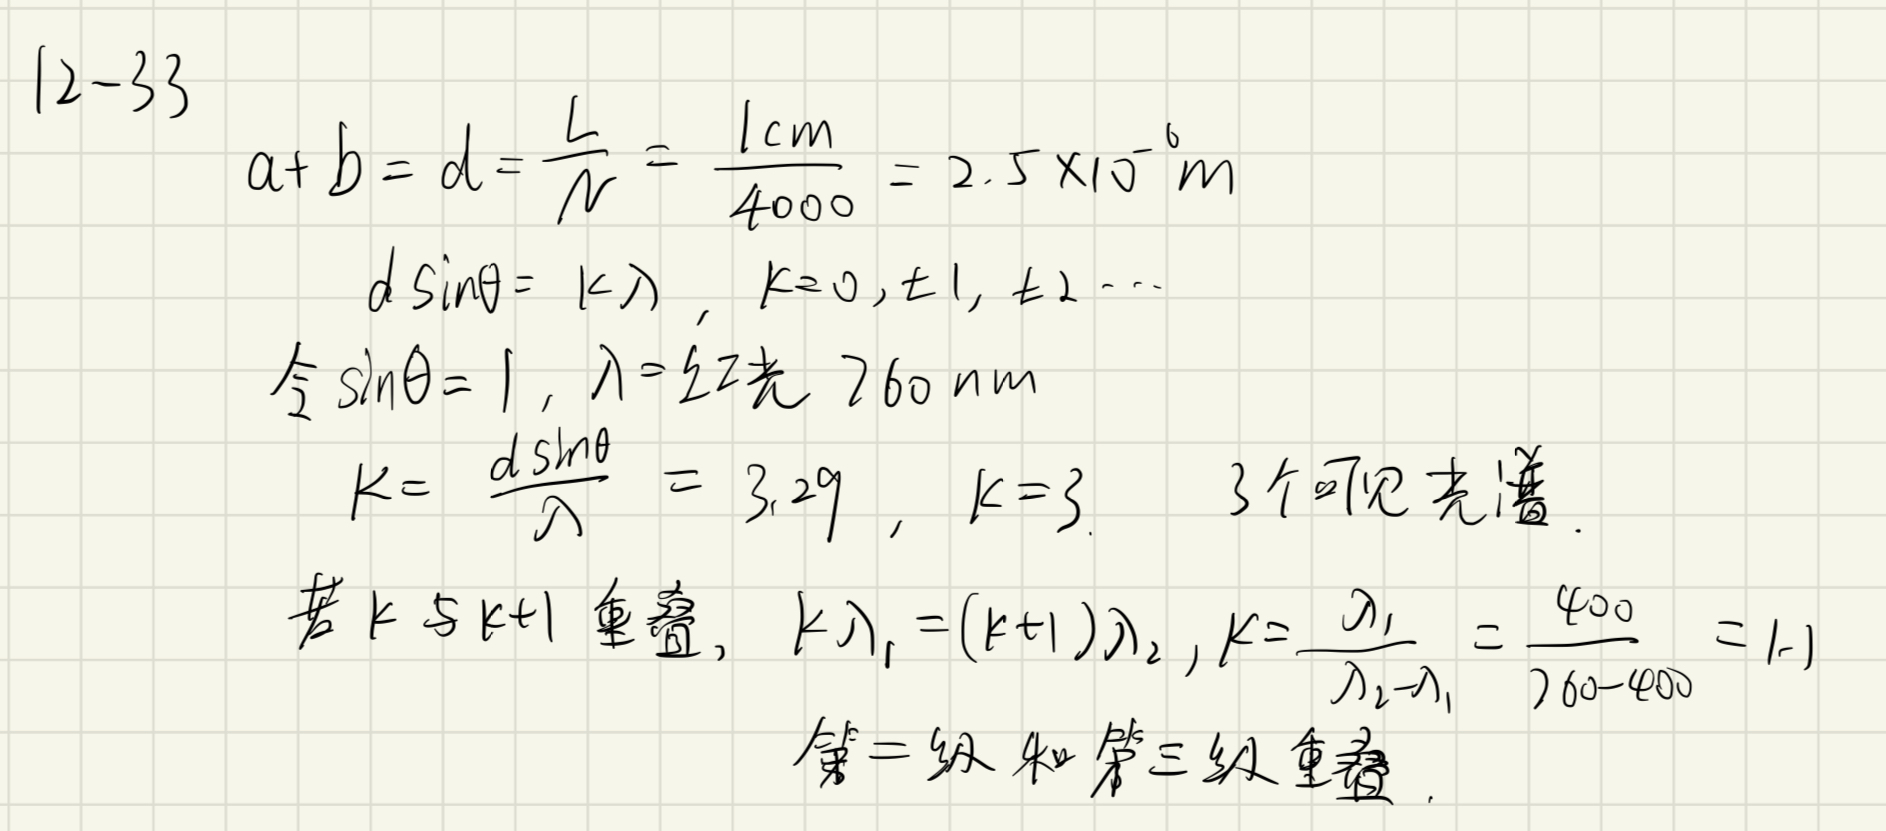 12-33
a+b = d = L/N = 1cm/4000 = 2.5×10⁻⁶m
dsinθ = kλ, k=0, ±1, ±2 ...
令 sinθ = 1, λ = 红光 760nm
K = dsinθ/λ = 3.29, K=3. 3个可见光谱.
若 k 与 k+1 重叠, kλ₁ = (k+1)λ₂, K = λ₁/(λ₂-λ₁) = 400/(760-400) = 1.1
第二级和第三级重叠.